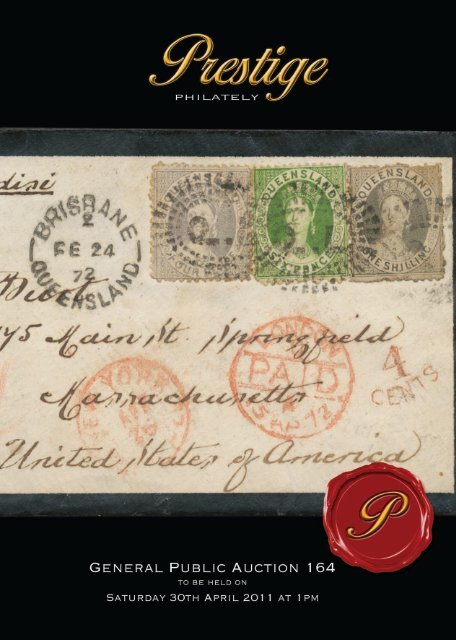 Prestige
PHILATELY
BRISBANE
2
FE 24
72
QUEENSLAND
QUEENSLAND
SIXPENCE
QUEENSLAND
ONE SHILLING
75 Main St. Springfield
Massachusetts
United States of America
LONDON
PAID
AP 72
4
CENTS
P
GENERAL PUBLIC AUCTION 164
TO BE HELD ON
SATURDAY 30TH APRIL 2011 AT 1PM